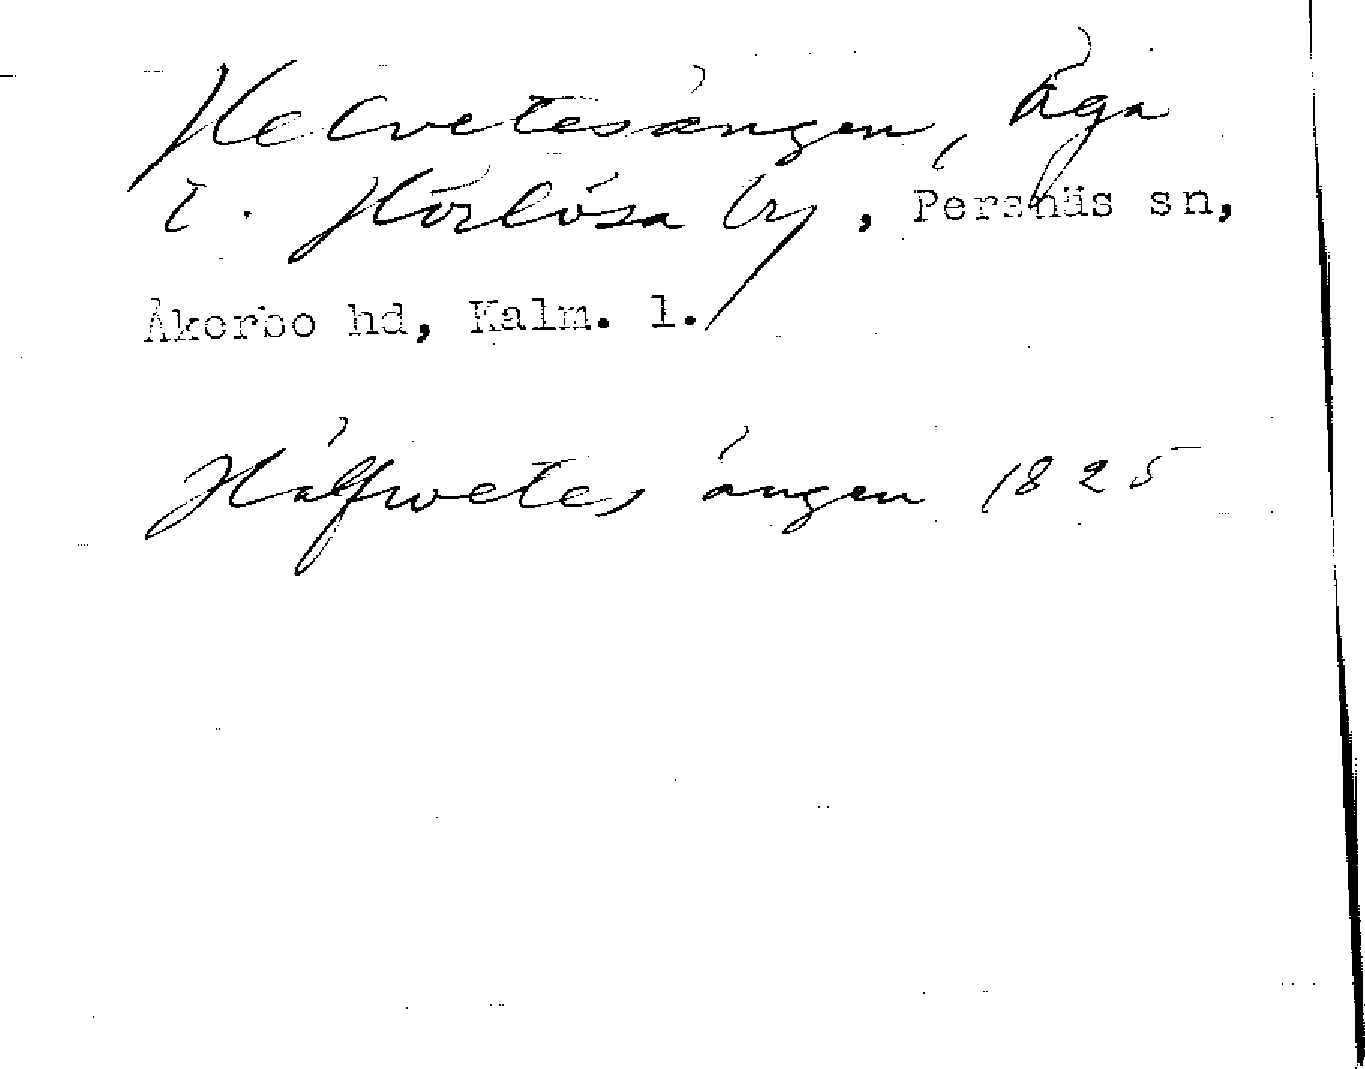 Helvetesängen, Äga
i. Hörlösa by, Persnäs sn,
Åkerbo hd, Kalm. l.
Hälfwetes ängen 1825